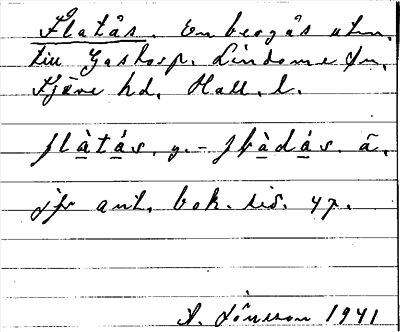 Flatås. En bergås utm.
till Gastorp. Lindome sn,
Fjäre hd, Hall. l.
flàtás, y. – flàdás. ä.
jfr ant. bok. sid. 47.
A. Jönsson 1941